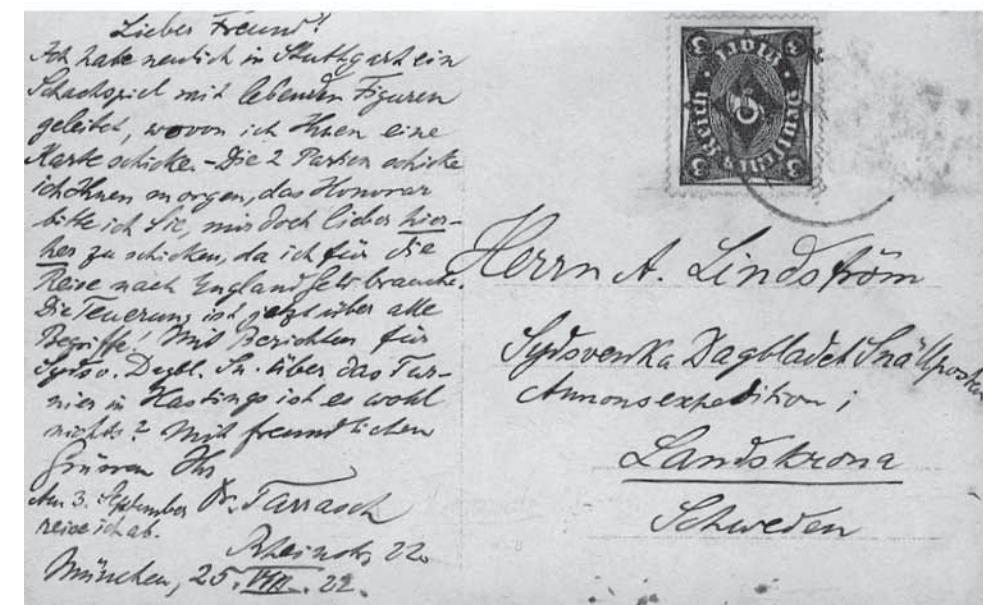 Lieber Freund!
Ich habe neulich in Stuttgart ein
Schachspiel mit lebenden Figuren
geleitet, wovon ich Ihnen eine
Karte schicke. - Die 2 Partien schicke
ich Ihnen morgen, das Honorar
bitte ich Sie, mir doch lieber hier-
her zu schicken, da ich für die
Reise nach England sehr brauche.
Die Teuerung ist jetzt über alle
Begriffe! Mit Berichten für
Sydsv. Dagbl. Sn. über das Tur-
nier in Hastings ist es wohl
nichts? Mit freundlichen
Grüssen Ihr
Am 3. September Dr. Tarrasch
reise ich ab.
Rheinstr. 22
München, 25. VIII. 22.
3 Mark 3
Deutsches Reich
3 3
Herrn A. Lindström
Sydsvenska Dagbladet Snällposten
Annonsexpedition i
Landskrona
Schweden